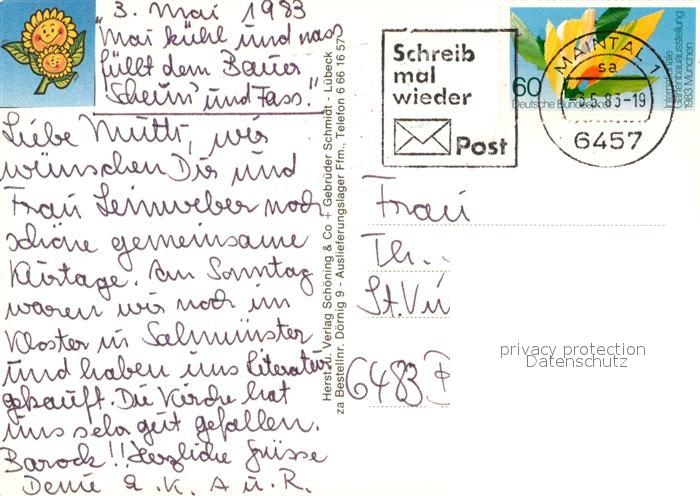 3. Mai 1983
"Mai kühl und nass
füllt dem Bauer
Scheun' und Fass."
Liebe Mutti, wir
wünschen Dir und
Frau Leinweber noch
schöne gemeinsame
Kurtage. Am Sonntag
waren wir noch im
Kloster in Salmünster
und haben uns Literatur
gekauft. Die Kirche hat
uns sehr gut gefallen.
Barock!! Herzliche Grüsse
Deine E. K. A u. R.
Herst. u. Verlag Schöning & Co + Gebrüder Schmidt - Lübeck
za Bestellnr. Dörnig 9 - Auslieferungslager Ffm., Telefon 6 66 16 57
Schreib
mal
wieder
Post
60
Deutsche Bundespost
Internationale
Gartenbauausstellung
1983 München
MAINTAL 1
sa
5.83-19
6457
Frau
Th...
St. Vi
6483 B
privacy protection
Datenschutz